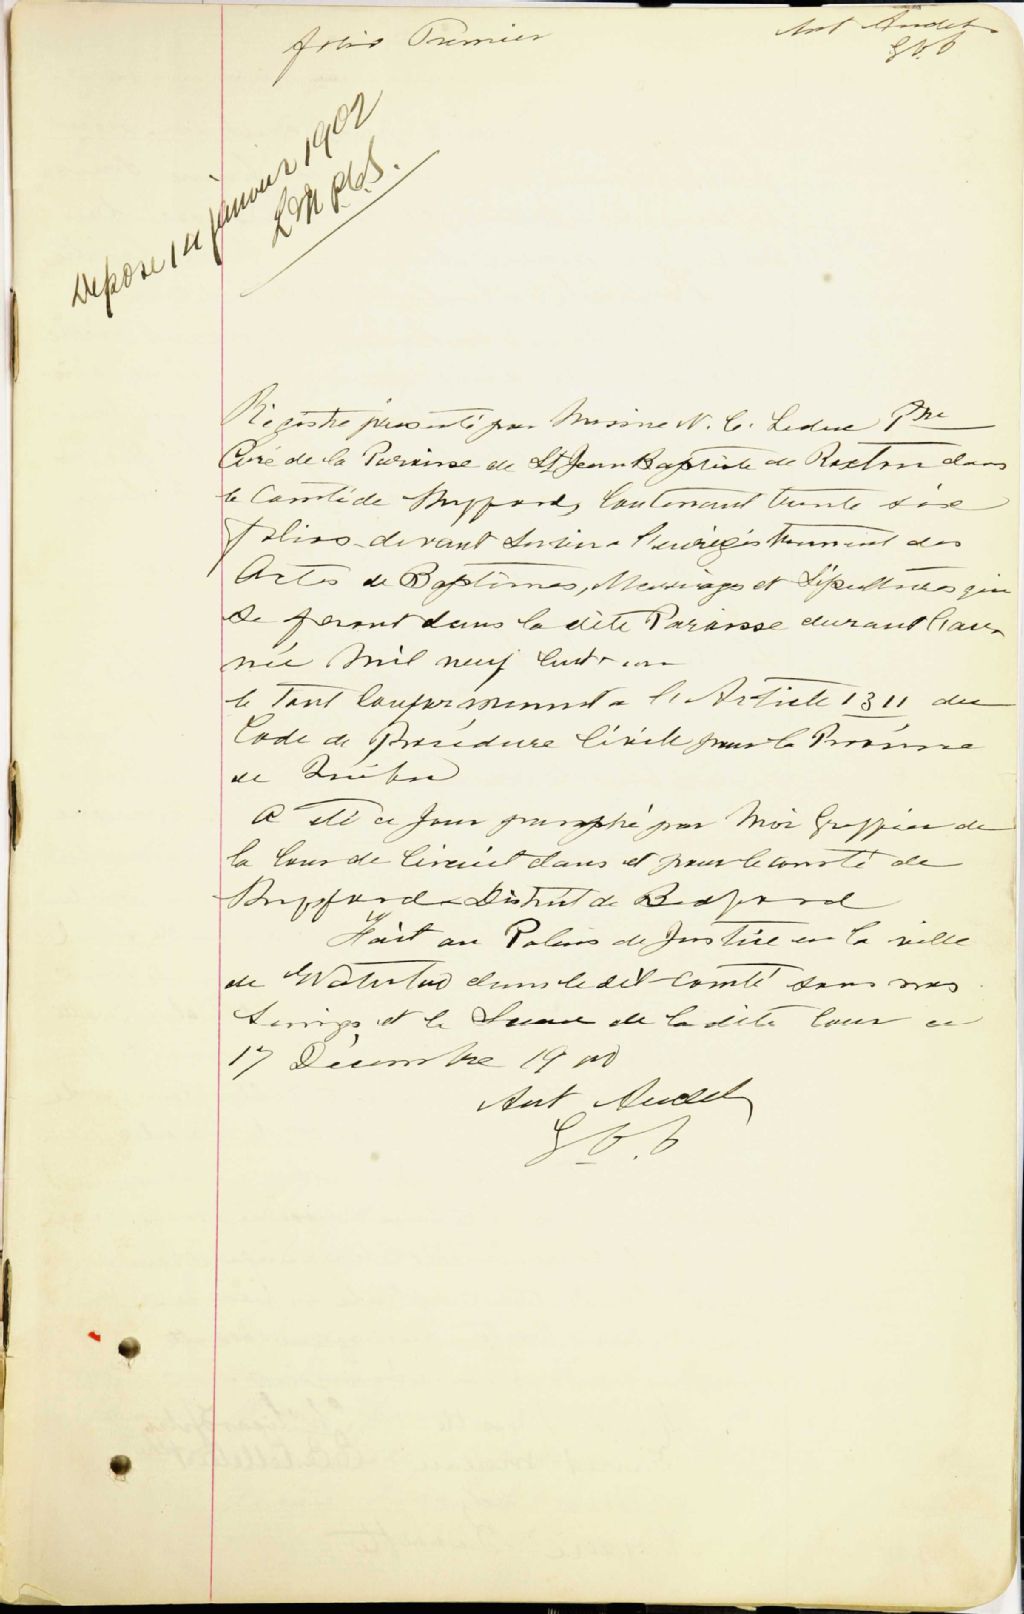 folio Premier
Ant Audet
G C C
Déposé 14 janvier 1902
L M P C S.
Régistre présenté par Messire N. C. Leduc Ptre
Curé de la Paroisse de St Jean Baptiste de Roxton dans
le Comté de Shefford, Contenant trente six
folios devant servir a l'enrégistrement des
Actes de Baptêmes, Marriages et Sépultures qui
se feront dans la dite Paroisse durant l'an-
née Mil neuf Cent un
le Tout Conformément a l'Article 1311 du
Code de Procédure Civile pour la Province
de Québec
A été ce Jour paraphé par Moi Greffier de
la Cour de Circuit dans et pour le comté de
Shefford District de Bedford
Fait au Palais de Justice en la ville
de Waterloo dans le dit Comté sous mes
Seings et le Sceau de la dite Cour ce
17 Décembre 1900
Ant Audet
G C. C